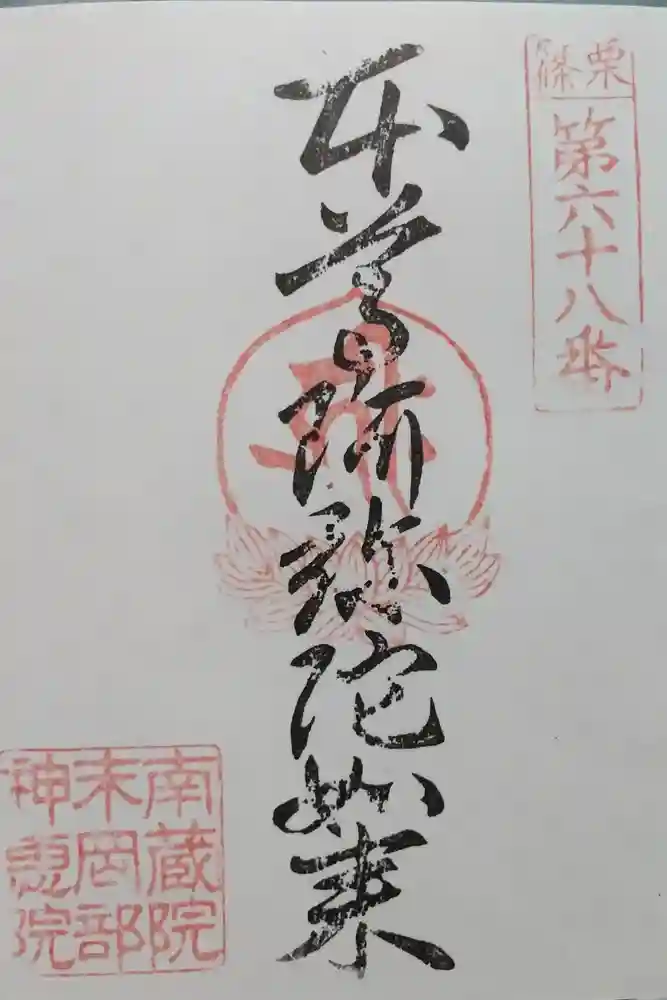 篠栗
第六十八番
本尊阿弥陀如来
南蔵院
末岡部
神恵院